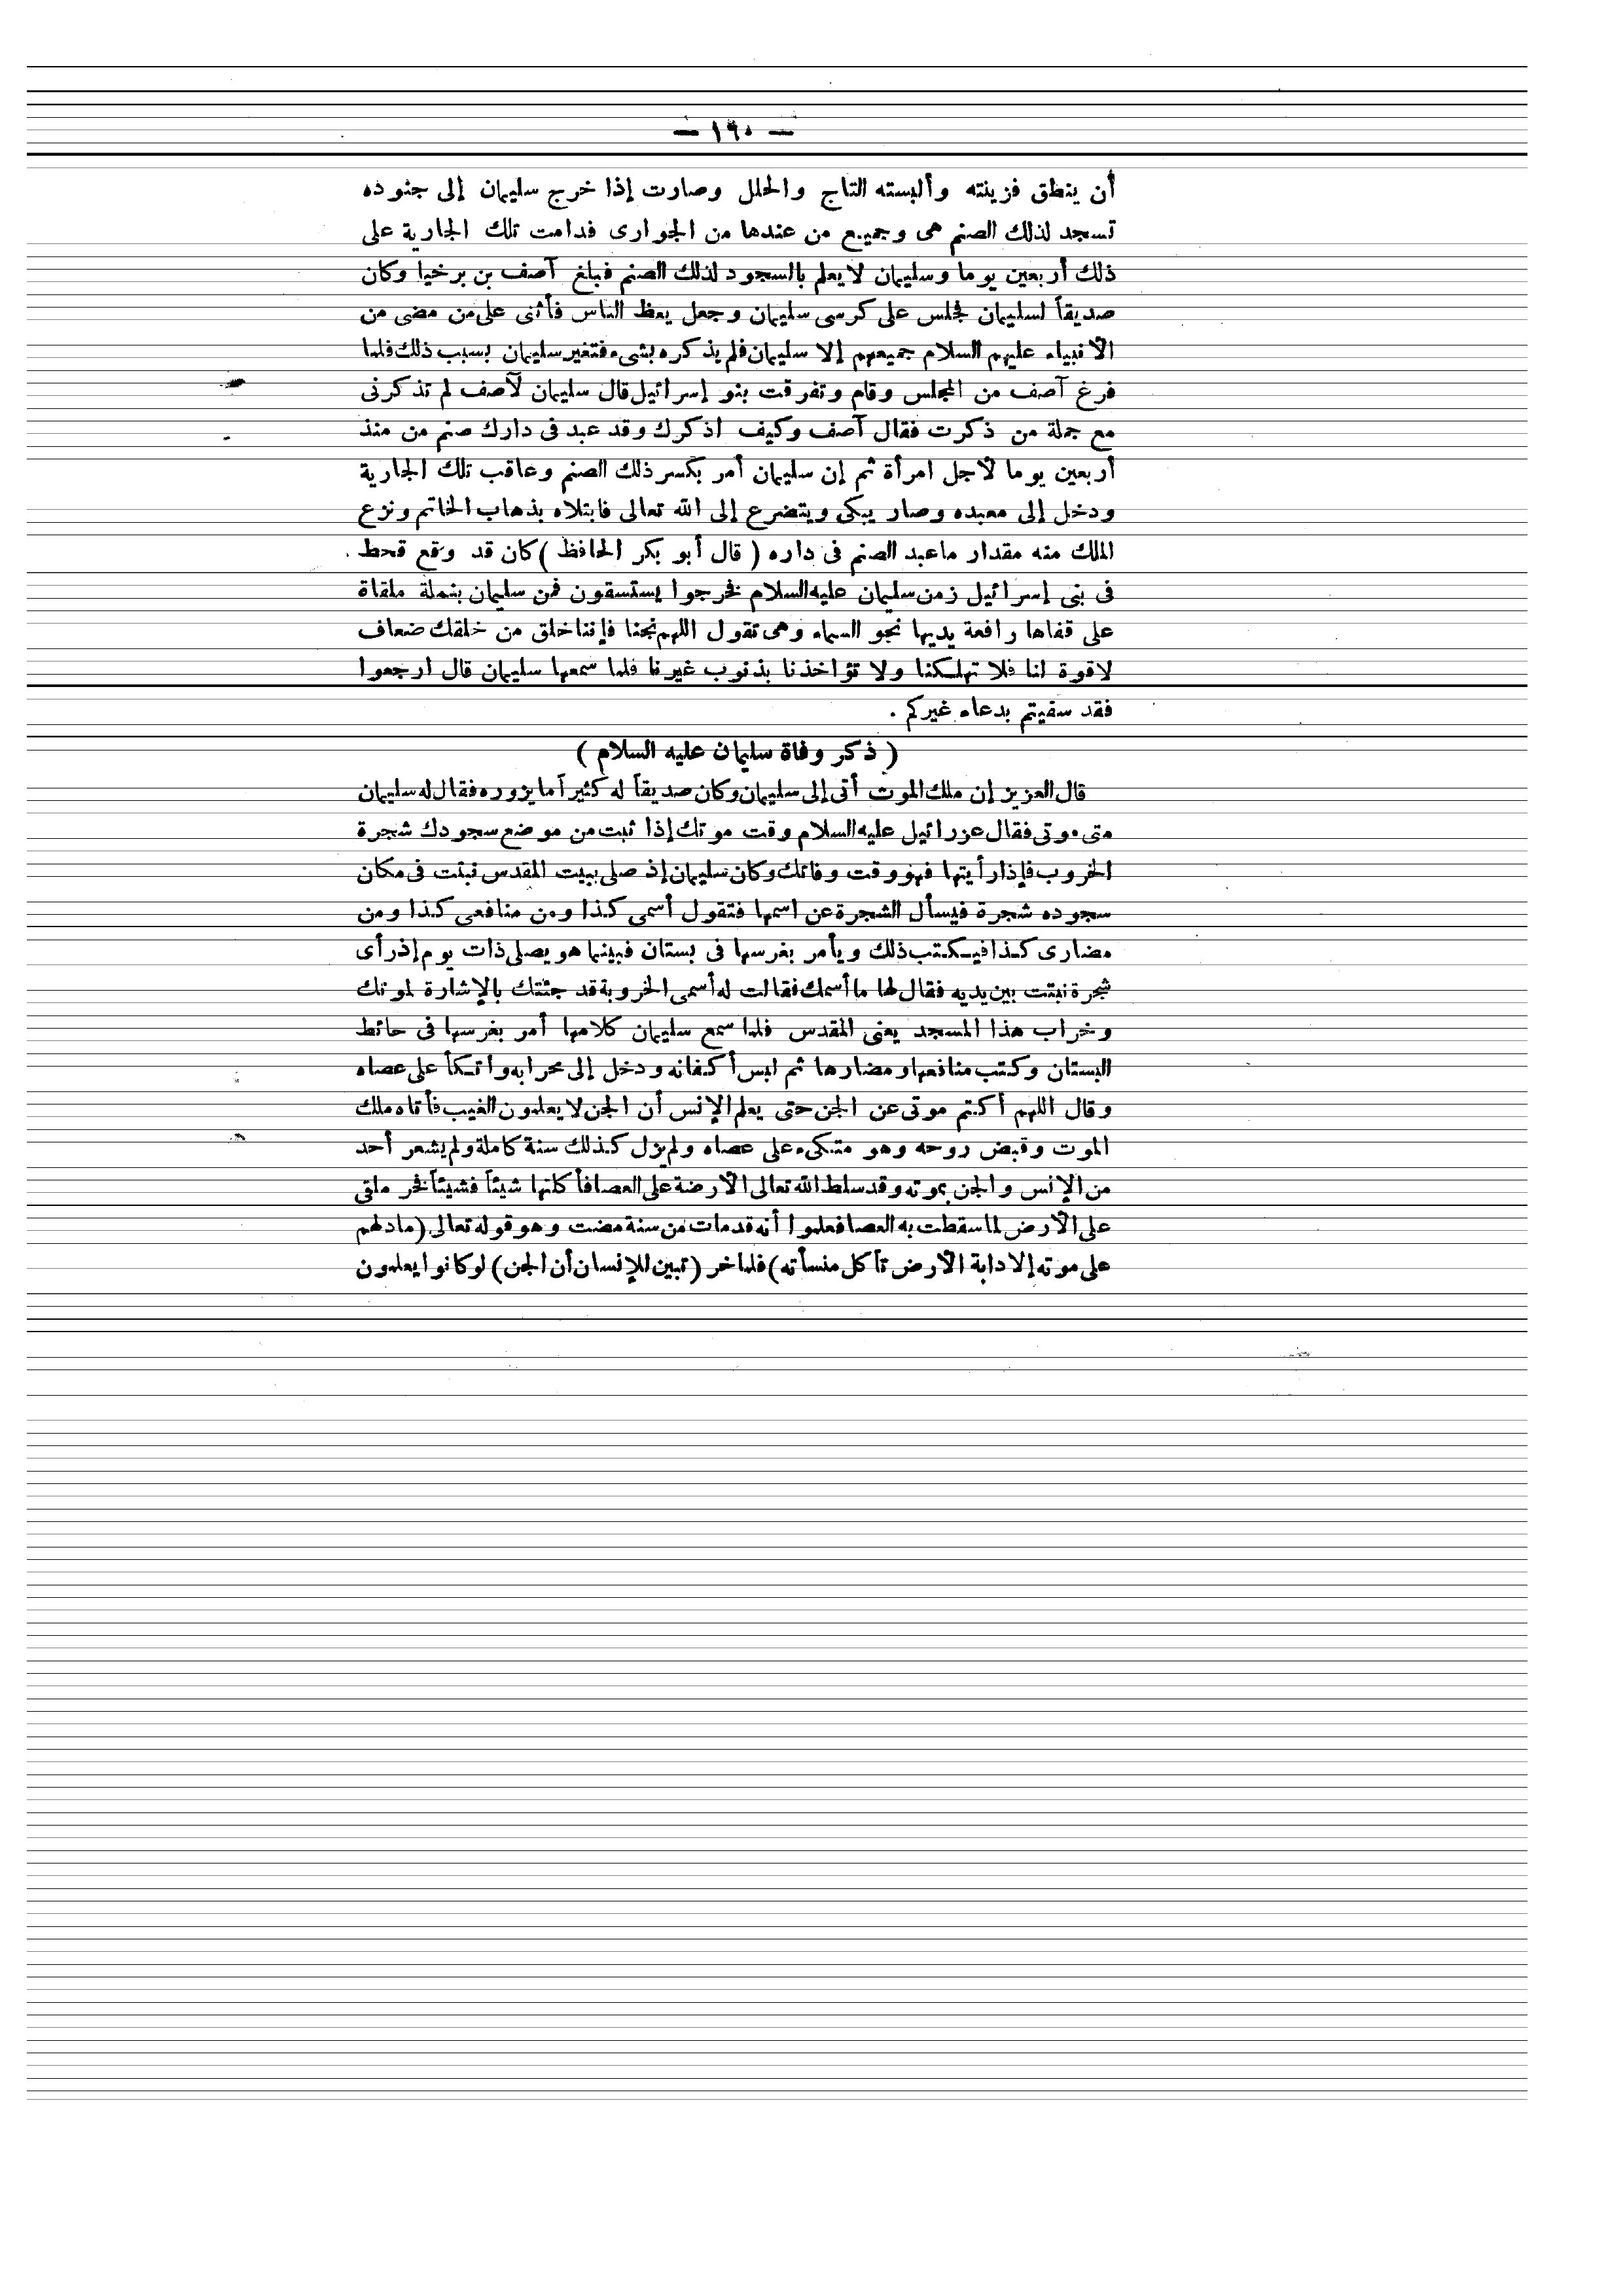 — ١٩٠ —
أن ينطق فزينته وألبسته التاج والحلل وصارت إذا خرج سليمان إلى جنوده
تسجد لذلك الصنم هى وجميع من عندها من الجوارى فدامت تلك الجارية على
ذلك أربعين يوما وسليمان لا يعلم بالسجود لذلك الصنم فبلغ آصف بن برخيا وكان
صديقاً لسليمان فجلس على كرسى سليمان وجعل يعظ الناس فأثنى على من مضى من
الأنبياء عليهم السلام جميعهم إلا سليمان فلم يذكره بشىء فتغير سليمان بسبب ذلك فلما
فرغ آصف من المجلس وقام وتفرقت بنو إسرائيل قال سليمان لآصف لم تذكرنى
مع جملة من ذكرت فقال آصف وكيف اذكرك وقد عبد فى دارك صنم من منذ
أربعين يوما لأجل امرأة ثم إن سليمان أمر بكسر ذلك الصنم وعاقب تلك الجارية
ودخل إلى معبده وصار يبكى ويتضرع إلى الله تعالى فابتلاه بذهاب الخاتم ونزع
الملك منه مقدار ماعبد الصنم فى داره ( قال أبو بكر الحافظ ) كان قد وقع قحط
فى بنى إسرائيل زمن سليمان عليه السلام فخرجوا يستسقون فمن سليمان بنملة ملقاة
على قفاها رافعة يديها نحو السماء وهى تقول اللهم نجنا فإننا خلق من خلقك ضعاف
لا قوة لنا فلا تهلكنا ولا تؤاخذنا بذنوب غيرنا فلما سمعها سليمان قال ارجعوا
فقد سقيتم بدعاء غيركم .
( ذكر وفاة سليمان عليه السلام )
قال العزيز إن ملك الموت أتى إلى سليمان وكان صديقاً له كثيراً ما يزوره فقال له سليمان
متى موتى فقال عزرائيل عليه السلام وقت موتك إذا نبت من موضع سجودك شجرة
الخروب فإذا رأيتها فهو وقت وفاتك وكان سليمان إذ صلى ببيت المقدس نبتت فى مكان
سجوده شجرة فيسأل الشجرة عن اسمها فتقول أسمى كذا ومن منافعى كذا ومن
مضارى كذا فيكتب ذلك ويأمر بغرسها فى بستان فبينما هو يصلى ذات يوم إذ رأى
شجرة نبتت بين يديه فقال لها ما أسمك فقالت له أسمى الخروبة قد جئتك بالإشارة لموتك
وخراب هذا المسجد يعنى المقدس فلما سمع سليمان كلامها أمر بغرسها فى حائط
البستان وكتب منافعها ومضارها ثم لبس أكفانه ودخل إلى محرابه واتكأ على عصاه
وقال اللهم أكتم موتى عن الجن حتى يعلم الإنس أن الجن لا يعلمون الغيب فأتاه ملك
الموت وقبض روحه وهو متكىء على عصاه ولم يزل كذلك سنة كاملة ولم يشعر أحد
من الإنس والجن بموته وقد سلط الله تعالى الأرضة على العصا فأكلتها شيئاً فشيئاً فخر ملقى
على الأرض لما سقطت به العصا فعلموا أنه قد مات من سنة مضت وهو قوله تعالى (ما دلهم
على موته إلا دابة الأرض تأكل منسأته) فلما خر (تبين للإنسان أن الجن) لو كانوا يعلمون